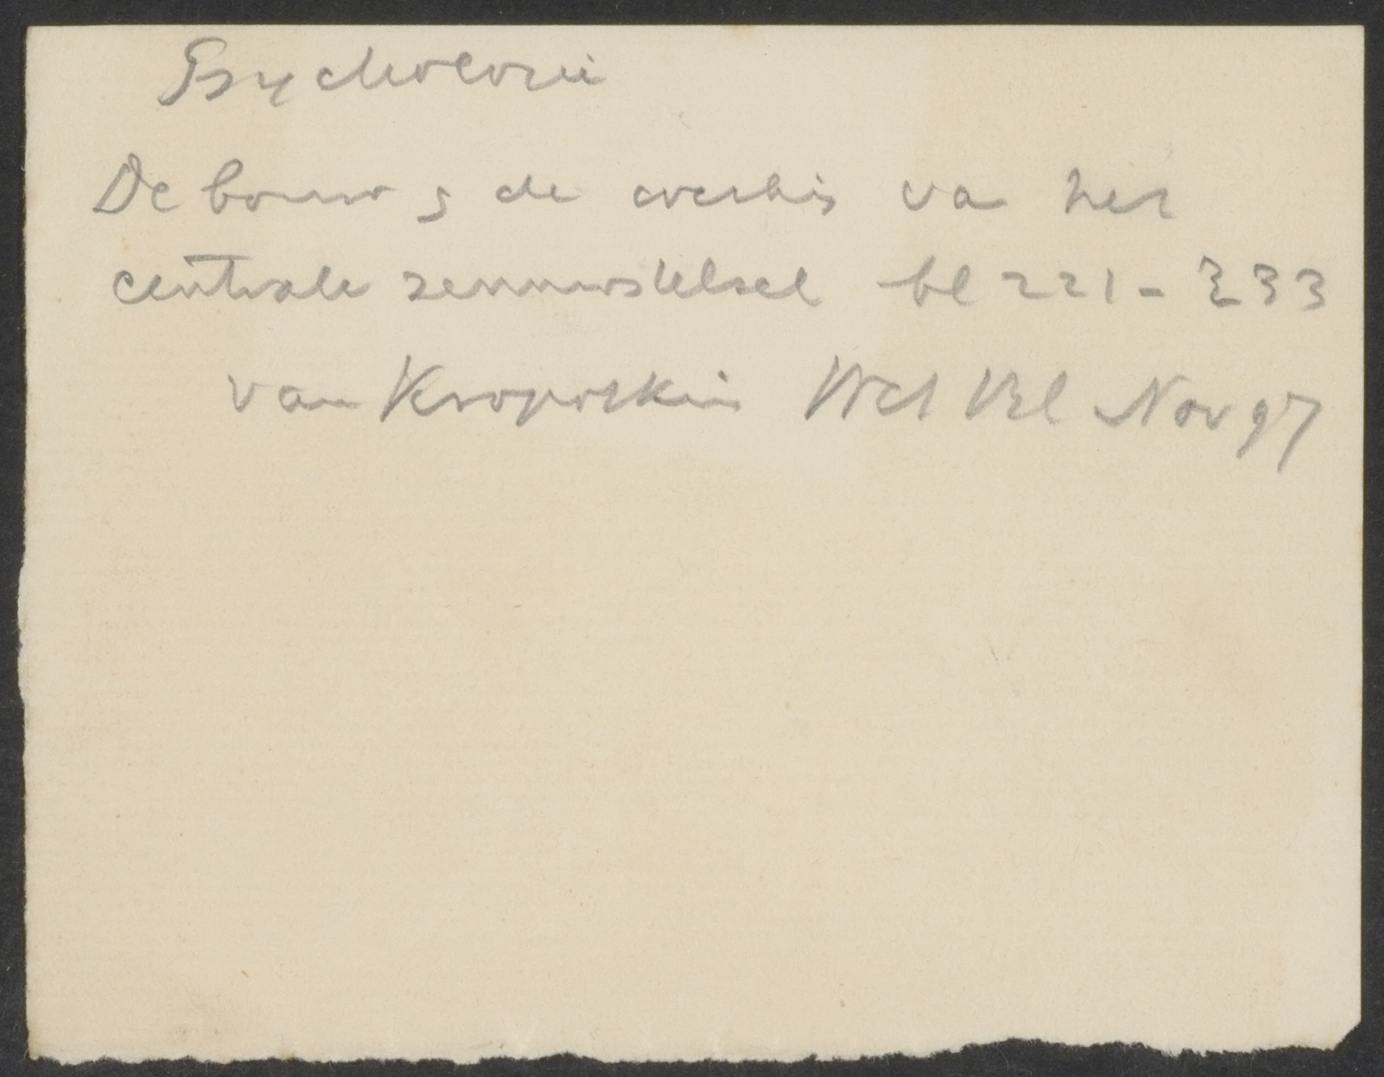 Psychologie
De bouw & de werking van het
centrale zenuwstelsel bl 221 - 233
van Kropotkin Wet Bl Nov 97